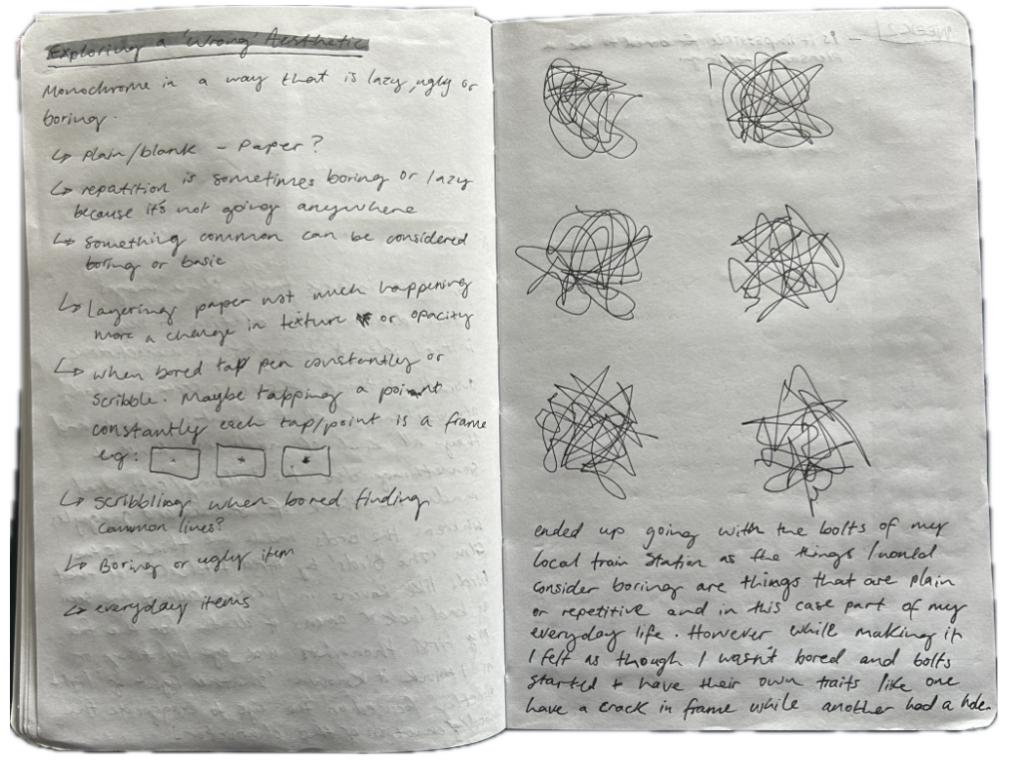 Exploring a 'Wrong' Aesthetic
Monochrome in a way that is lazy, ugly or
boring.
↳ Plain/blank - Paper?
↳ repatition is sometimes boring or lazy
because it's not going anywhere
↳ Something common can be considered
boring or basic
↳ Layering paper not much happening
more a change in texture or opacity
↳ when bored tap pen constantly or
scribble. Maybe tapping a point
constantly each tap/point is a frame
eg:
↳ scribbling when bored finding
common lines?
↳ Boring or ugly item
↳ everyday items
WEEK 2
ended up going with the bolts of my
local train station as the things I would
consider boring are things that are plain
or repetitive and in this case part of my
everyday life. However while making it
I felt as though I wasn't bored and bolts
started to have their own traits like one
have a crack in frame while another had a hole.